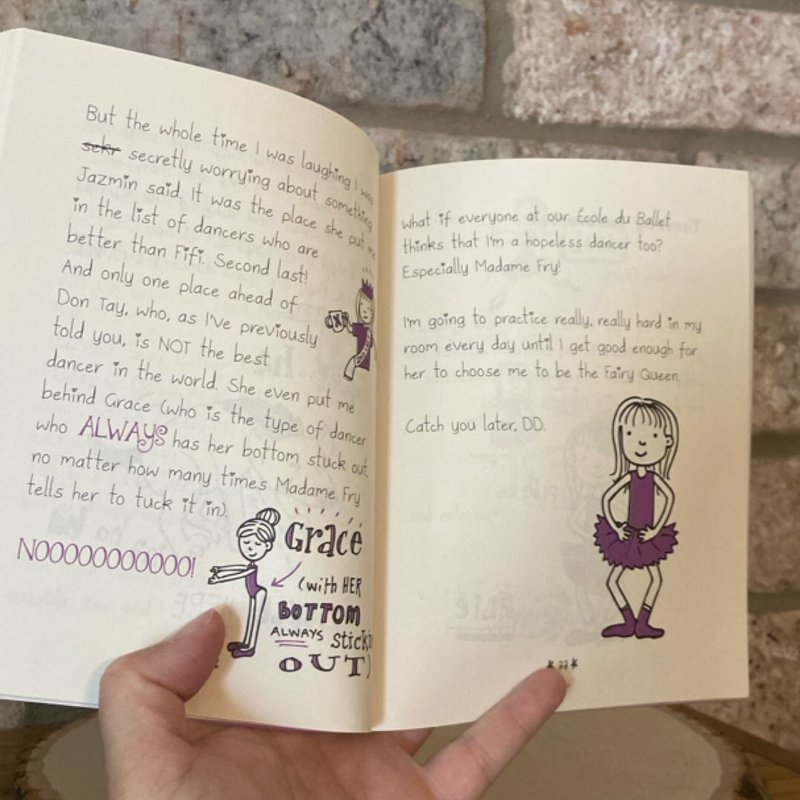 But the whole time I was laughing I was
sekr secretly worrying about something
Jazmin said. It was the place she put me
in the list of dancers who are
better than Fifi. Second last!
And only one place ahead of
Don Tay, who, as I've previously
told you, is NOT the best
dancer in the world. She even put me
behind Grace (who is the type of dancer
who ALWAYS has her bottom stuck out,
no matter how many times Madame Fry
tells her to tuck it in).
NOOOOOOOOOOO!
Grace
(with HER
BOTTOM
ALWAYS
OUT)
what if everyone at our École du Ballet
thinks that I'm a hopeless dancer too?
Especially Madame Fry!
I'm going to practice really, really hard in my
room every day until I get good enough for
her to choose me to be the Fairy Queen.
Catch you later, DD.